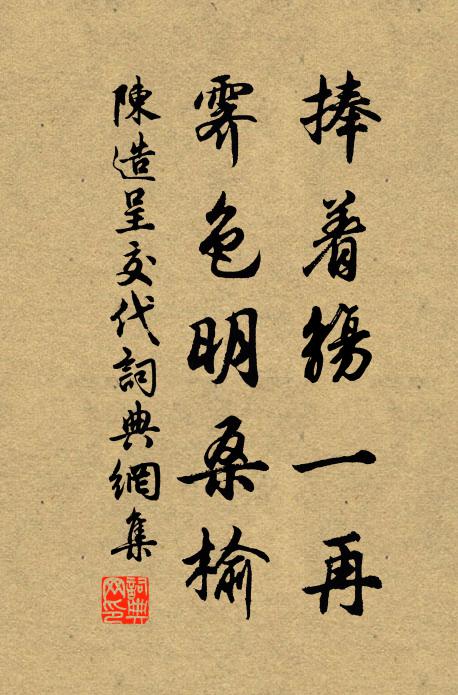 捧着觴一再
霽色明桑榆
陳造呈交代詞典網集
詞典网印